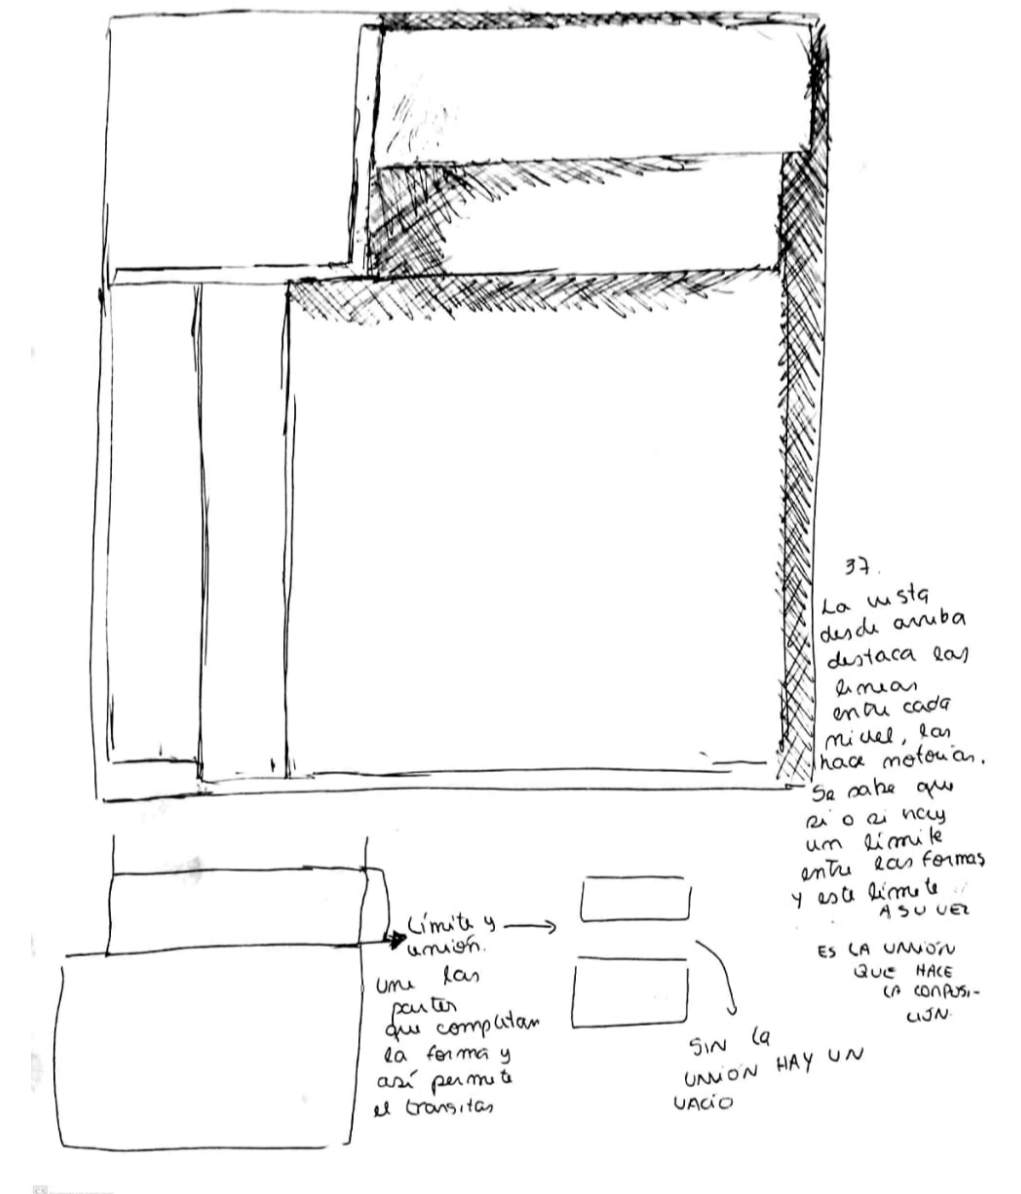 37.
La vista
desde arriba
destaca las
lineas
entre cada
nivel, las
hace notorias.
Se sabe que
si o si hay
un límite
entre las formas
y este límite
A SU VEZ
ES LA UNIÓN
QUE HACE
LA COMPOSI-
CIÓN.
Límite y
unión.
une las
partes
que completan
la forma y
así permite
el transitar
SIN la
UNIÓN HAY UN
VACÍO
CS